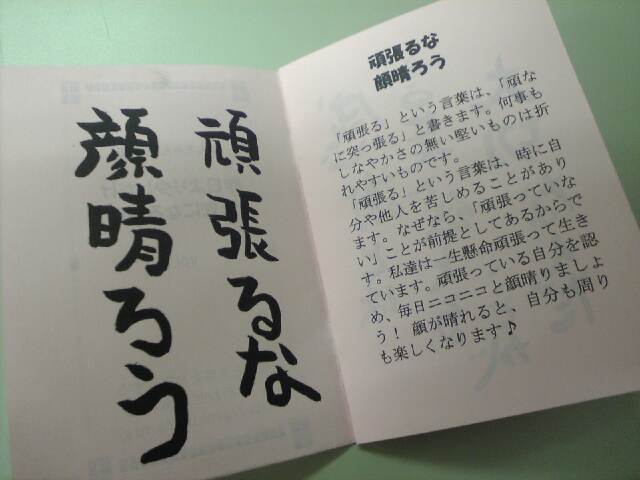 頑張るな
顔晴ろう
頑張るな
顔晴ろう
「頑張る」という言葉は、「頑な
に突っ張る」と書きます。何事も
しなやかさの無い堅いものは折
れやすいものです。
「頑張る」という言葉は、時に自
分や他人を苦しめることがあり
ます。なぜなら、「頑張っていな
い」ことが前提としてあるからで
す。私達は一生懸命頑張って生き
ています。頑張っている自分を認
め、毎日ニコニコと顔晴りましょ
う！ 顔が晴れると、自分も周り
も楽しくなります♪